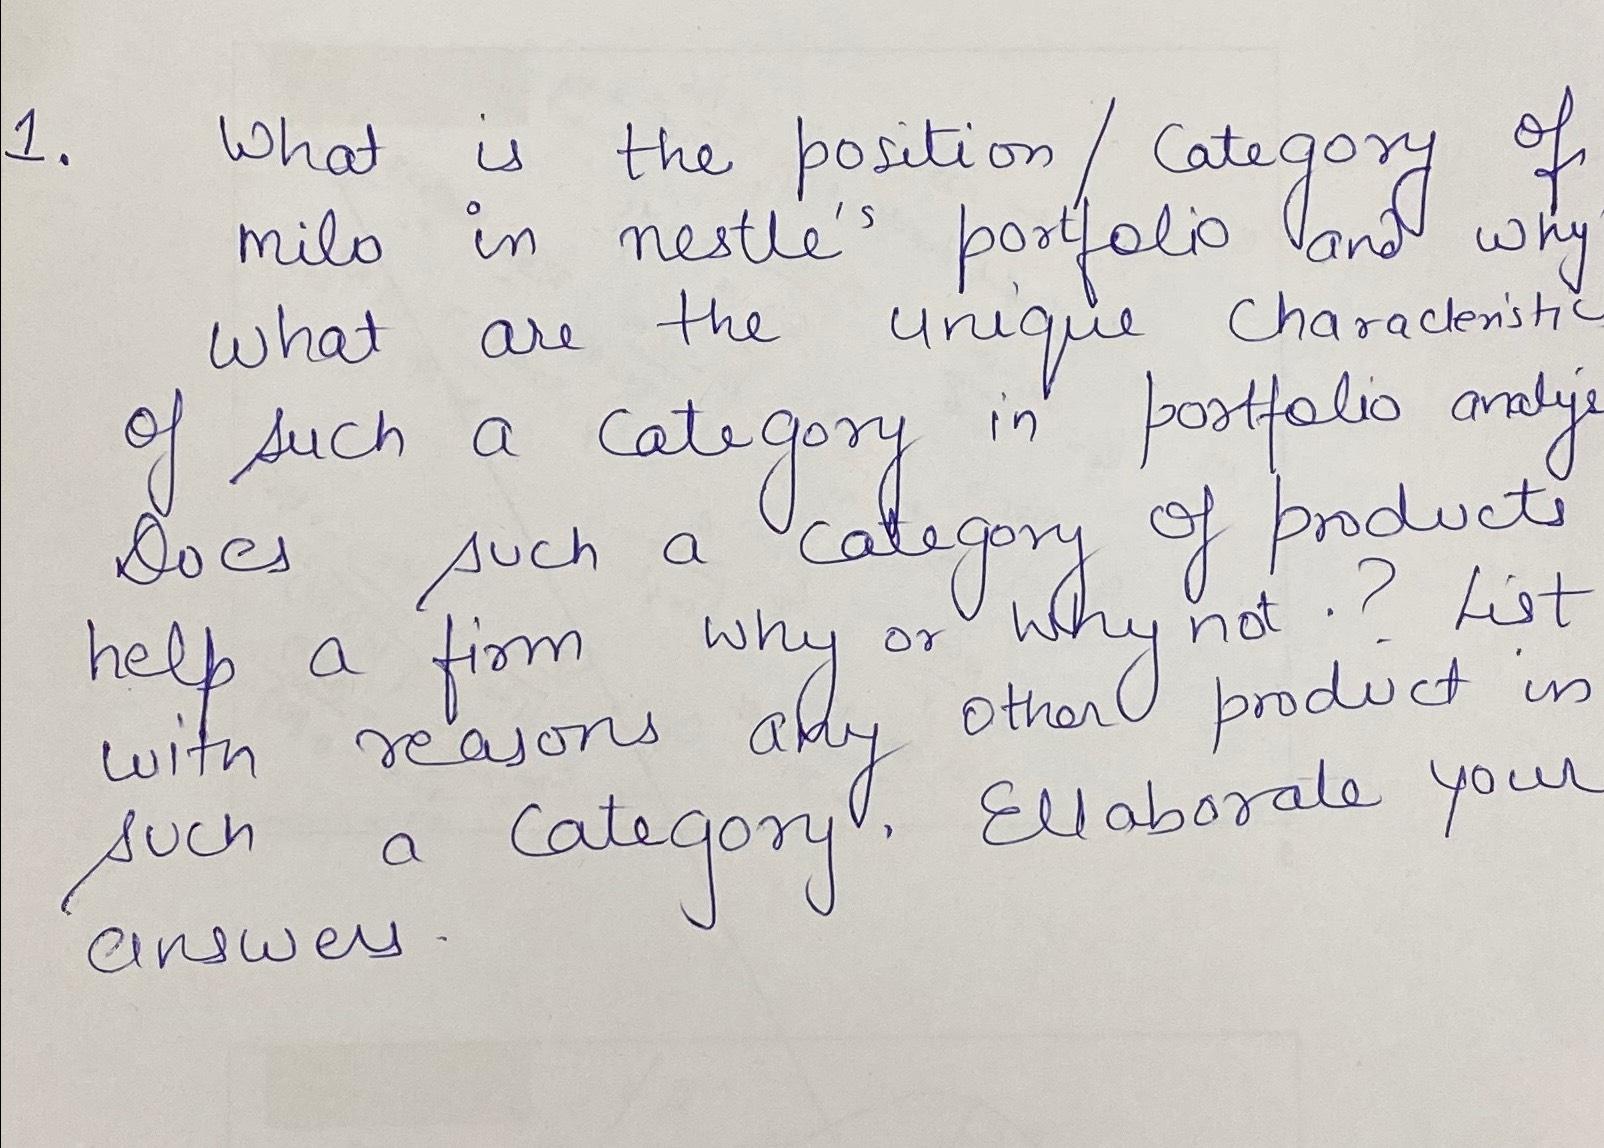 1. What is the position/Category of
milo in nestle's portfolio and why
What are the unique Characteristic
of such a Category in portfolio
Does such a Category of products
help a firm why or why not.? List
with reasons any other product in
such a Category. Ellaborate your
answers.